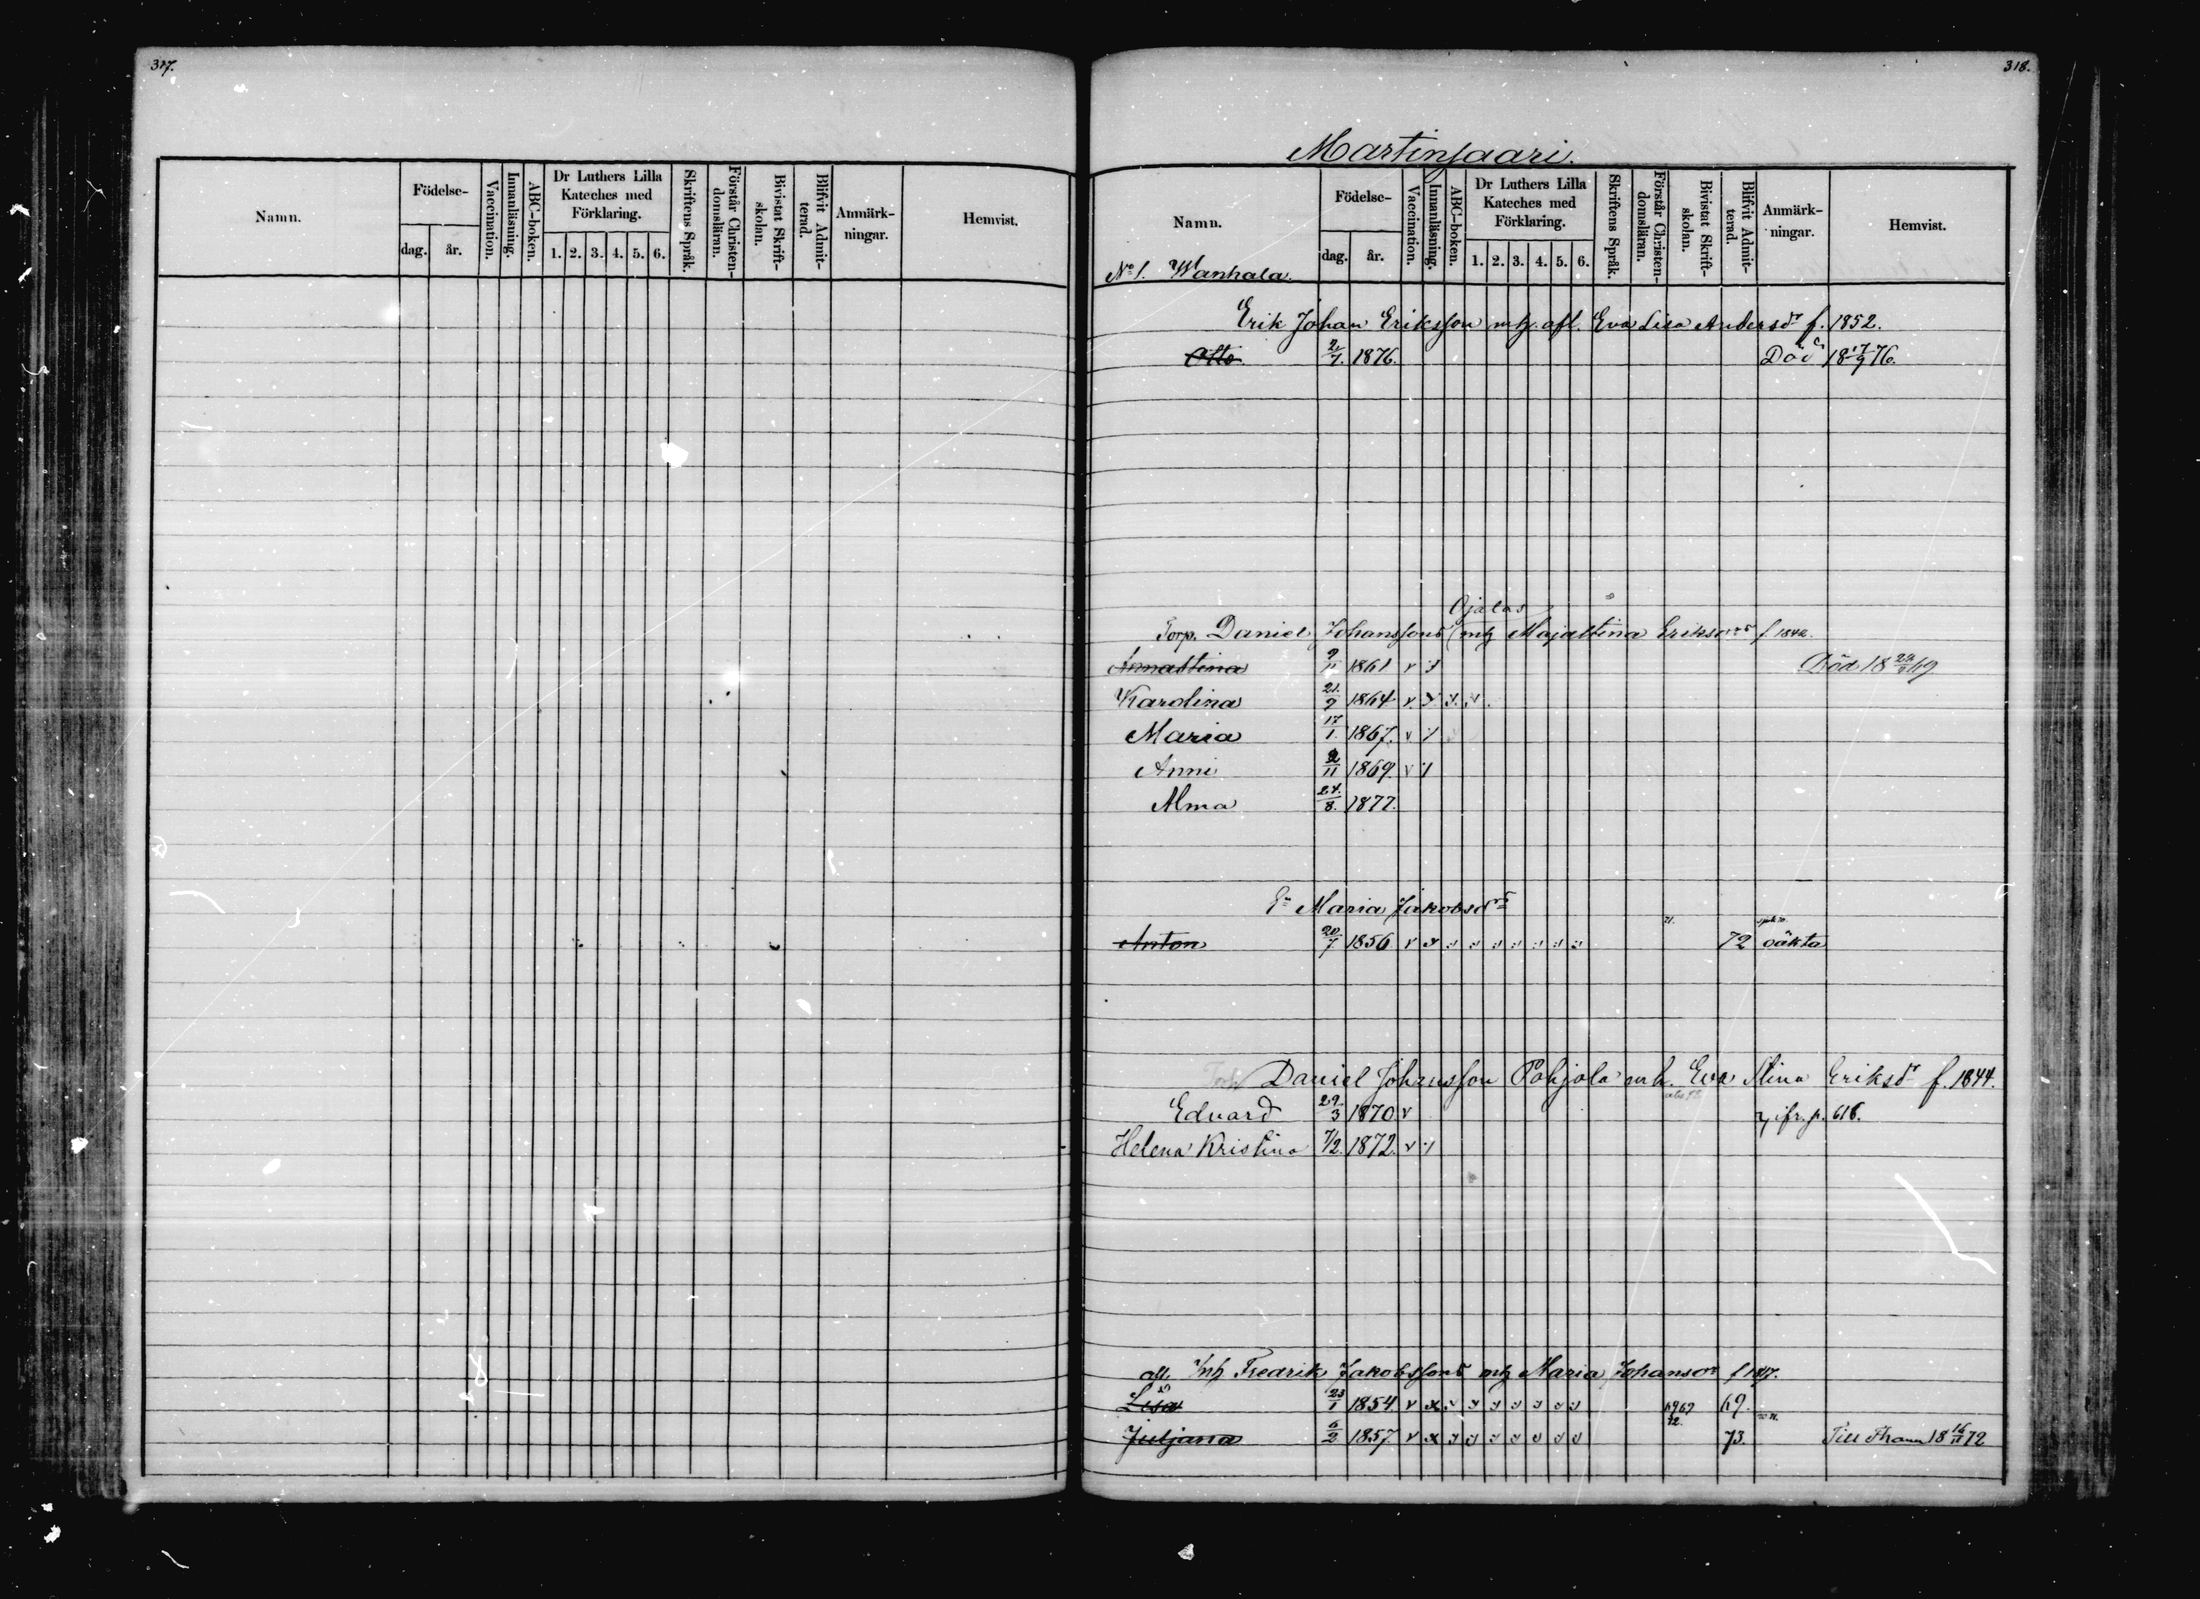 317.
Namn. Födelse- dag. år. Vaccination. Innanläsning. ABC-boken. Dr Luthers Lilla Kateches med Förklaring. 1. 2. 3. 4. 5. 6. Skriftens Språk. Förstår Christen-domsläran. Bivistat Skrift-skolan. Blifvit Admit-terad. Anmärk-ningar. Hemvist.
318.
Martinsaari.
Namn. Födelse- dag. år. Vaccination. Innanläsning. ABC-boken. Dr Luthers Lilla Kateches med Förklaring. 1. 2. 3. 4. 5. 6. Skriftens Språk. Förstår Christen-domsläran. Bivistat Skrift-skolan. Blifvit Admit-terad. Anmärk-ningar. Hemvist.
No 1. Wanhala.
Erik Johan Eriksson mh. afl. Eva Lisa Andersdr f. 1852.
Otto 2/7. 1876. Död 18 17/9 76.
Ojalas
Torp. Daniel Johanssons mh Majastina Eriksdrs f. 1842.
Annastina 9/11 1861 v Död 18 69
Karolina 21/9 1864 v
Maria 17/1. 1867. v
Anni 2/11 1869. v
Alma 24./8. 1877.
Maria Jakobsdrs
71.
Anton 20/7 1856 v x 72 oäkta
Daniel Johansson Pohjola mh. Eva Stina Eriksdr f. 1844.
Edvard 29/3 1870 v jfr. p. 618.
Helena Kristina 7/2. 1872. v
Inh Fredrik Jakobssons mh Maria Johansdr f 1817.
Lisa 23/1 1854. v x 69 69.
72.
Juljana 6/2 1857. v x 73. Till 18 72